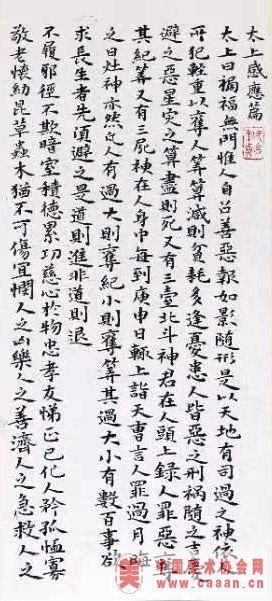 太上感應篇
太上曰禍福無門惟人自召善惡報如影隨形是以天地有司過之神依人
所犯輕重以奪人算算減則貧耗多逢憂患人皆惡之刑禍隨之吉慶
避之惡星災之算盡則死又有三臺北斗神君在人頭上録人罪惡奪
其紀算又有三尸神在人身中每到庚申日輒上詣天曹言人罪過月晦
之日灶神亦然凡人有過大則奪紀小則奪算其過大小有數百事欲
求長生者先須避之是道則進非道則退
不履邪徑不欺暗室積德累功慈心於物忠孝友悌正己化人矜孤恤寡
敬老懷幼昆草蟲木猶不可傷宜憫人之凶樂人之善濟人之急救人之
www.caaan.cn